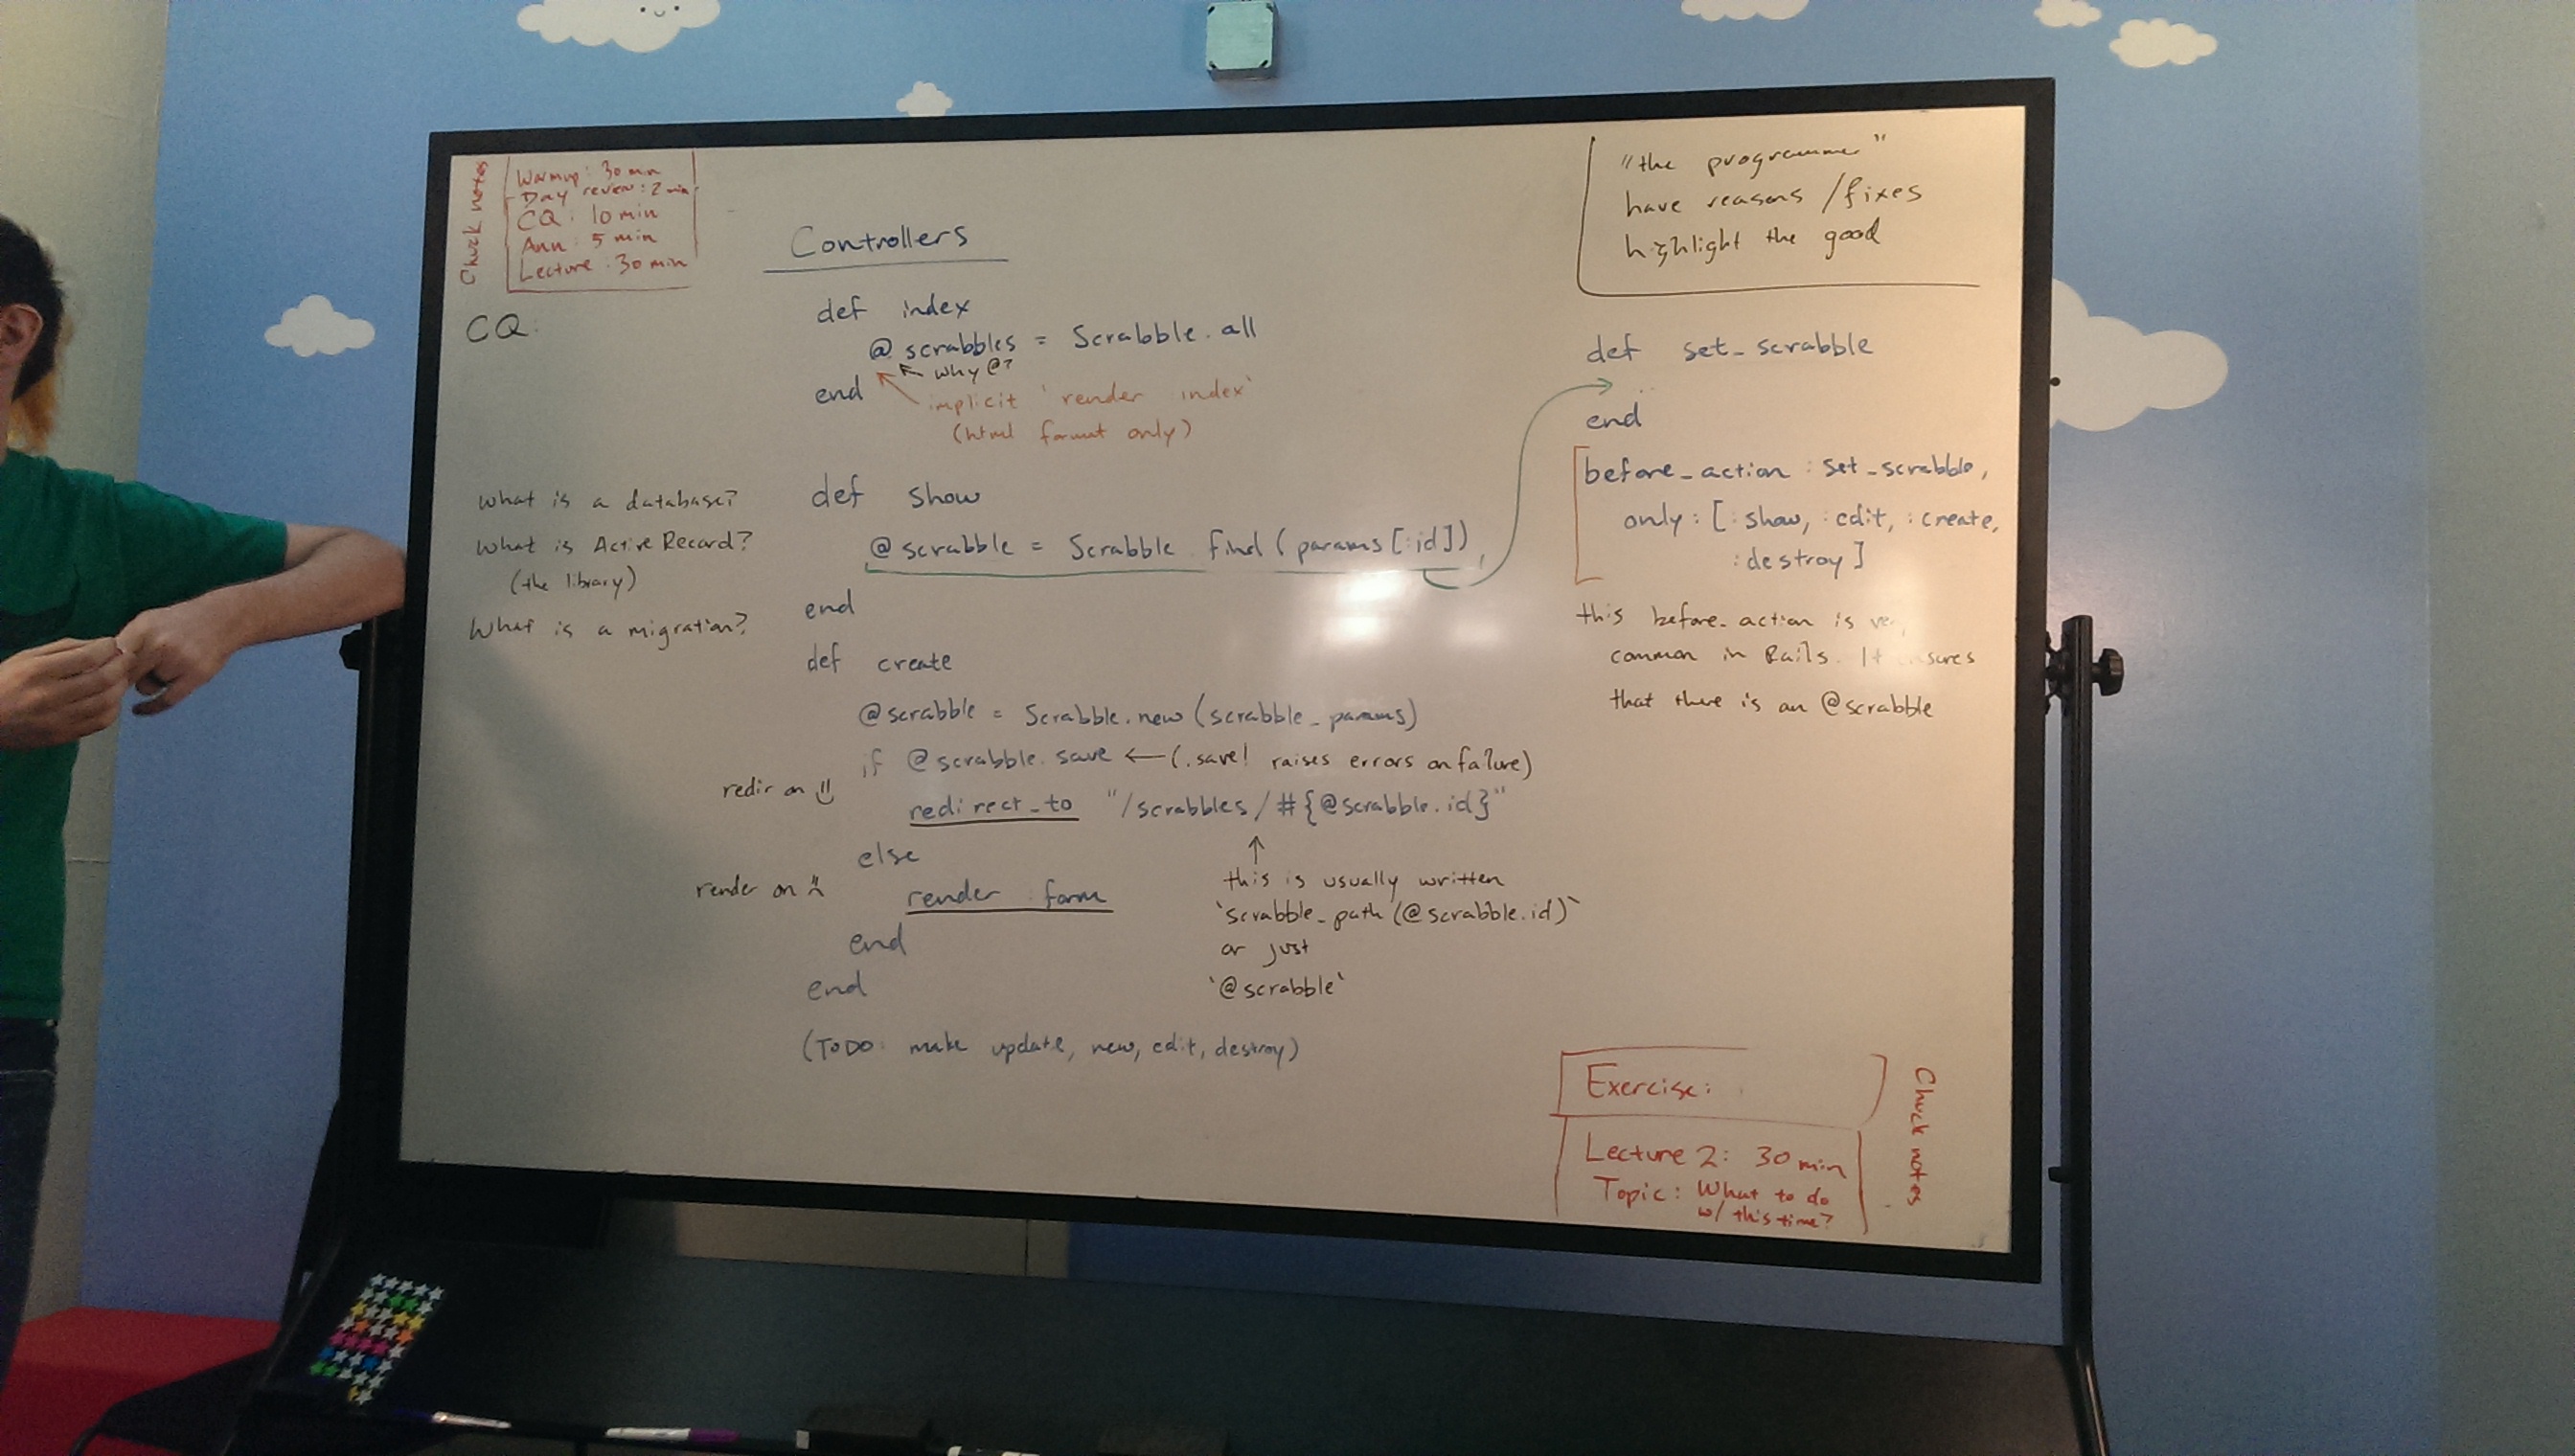 Chuck notes
Warmup: 30 min
Day review: 2 min
CQ: 10 min
Ann: 5 min
Lecture: 30 min
CQ:
What is a database?
What is Active Record?
(the library)
What is a migration?
Controllers
def index
@scrabbles = Scrabble.all
why @?
end
implicit `render index`
(html format only)
def show
@scrabble = Scrabble.find(params[:id])
end
def create
@scrabble = Scrabble.new(scrabble_params)
if @scrabble.save ← (.save! raises errors on failure)
redir on
redirect_to "/scrabbles/#{@scrabble.id}"
else
render on
render :form
end
end
this is usually written
`scrabble_path(@scrabble.id)`
or just
`@scrabble`
(TODO: make update, new, edit, destroy)
"the programmer"
have reasons/fixes
highlight the good
def set_scrabble
..
end
before_action :set_scrabble,
only: [:show, :edit, :create,
:destroy]
this before_action is
common in Rails. It
that there is an @scrabble
Exercise:
Lecture 2: 30 min
Topic: What to do
w/ this time?
Chuck notes